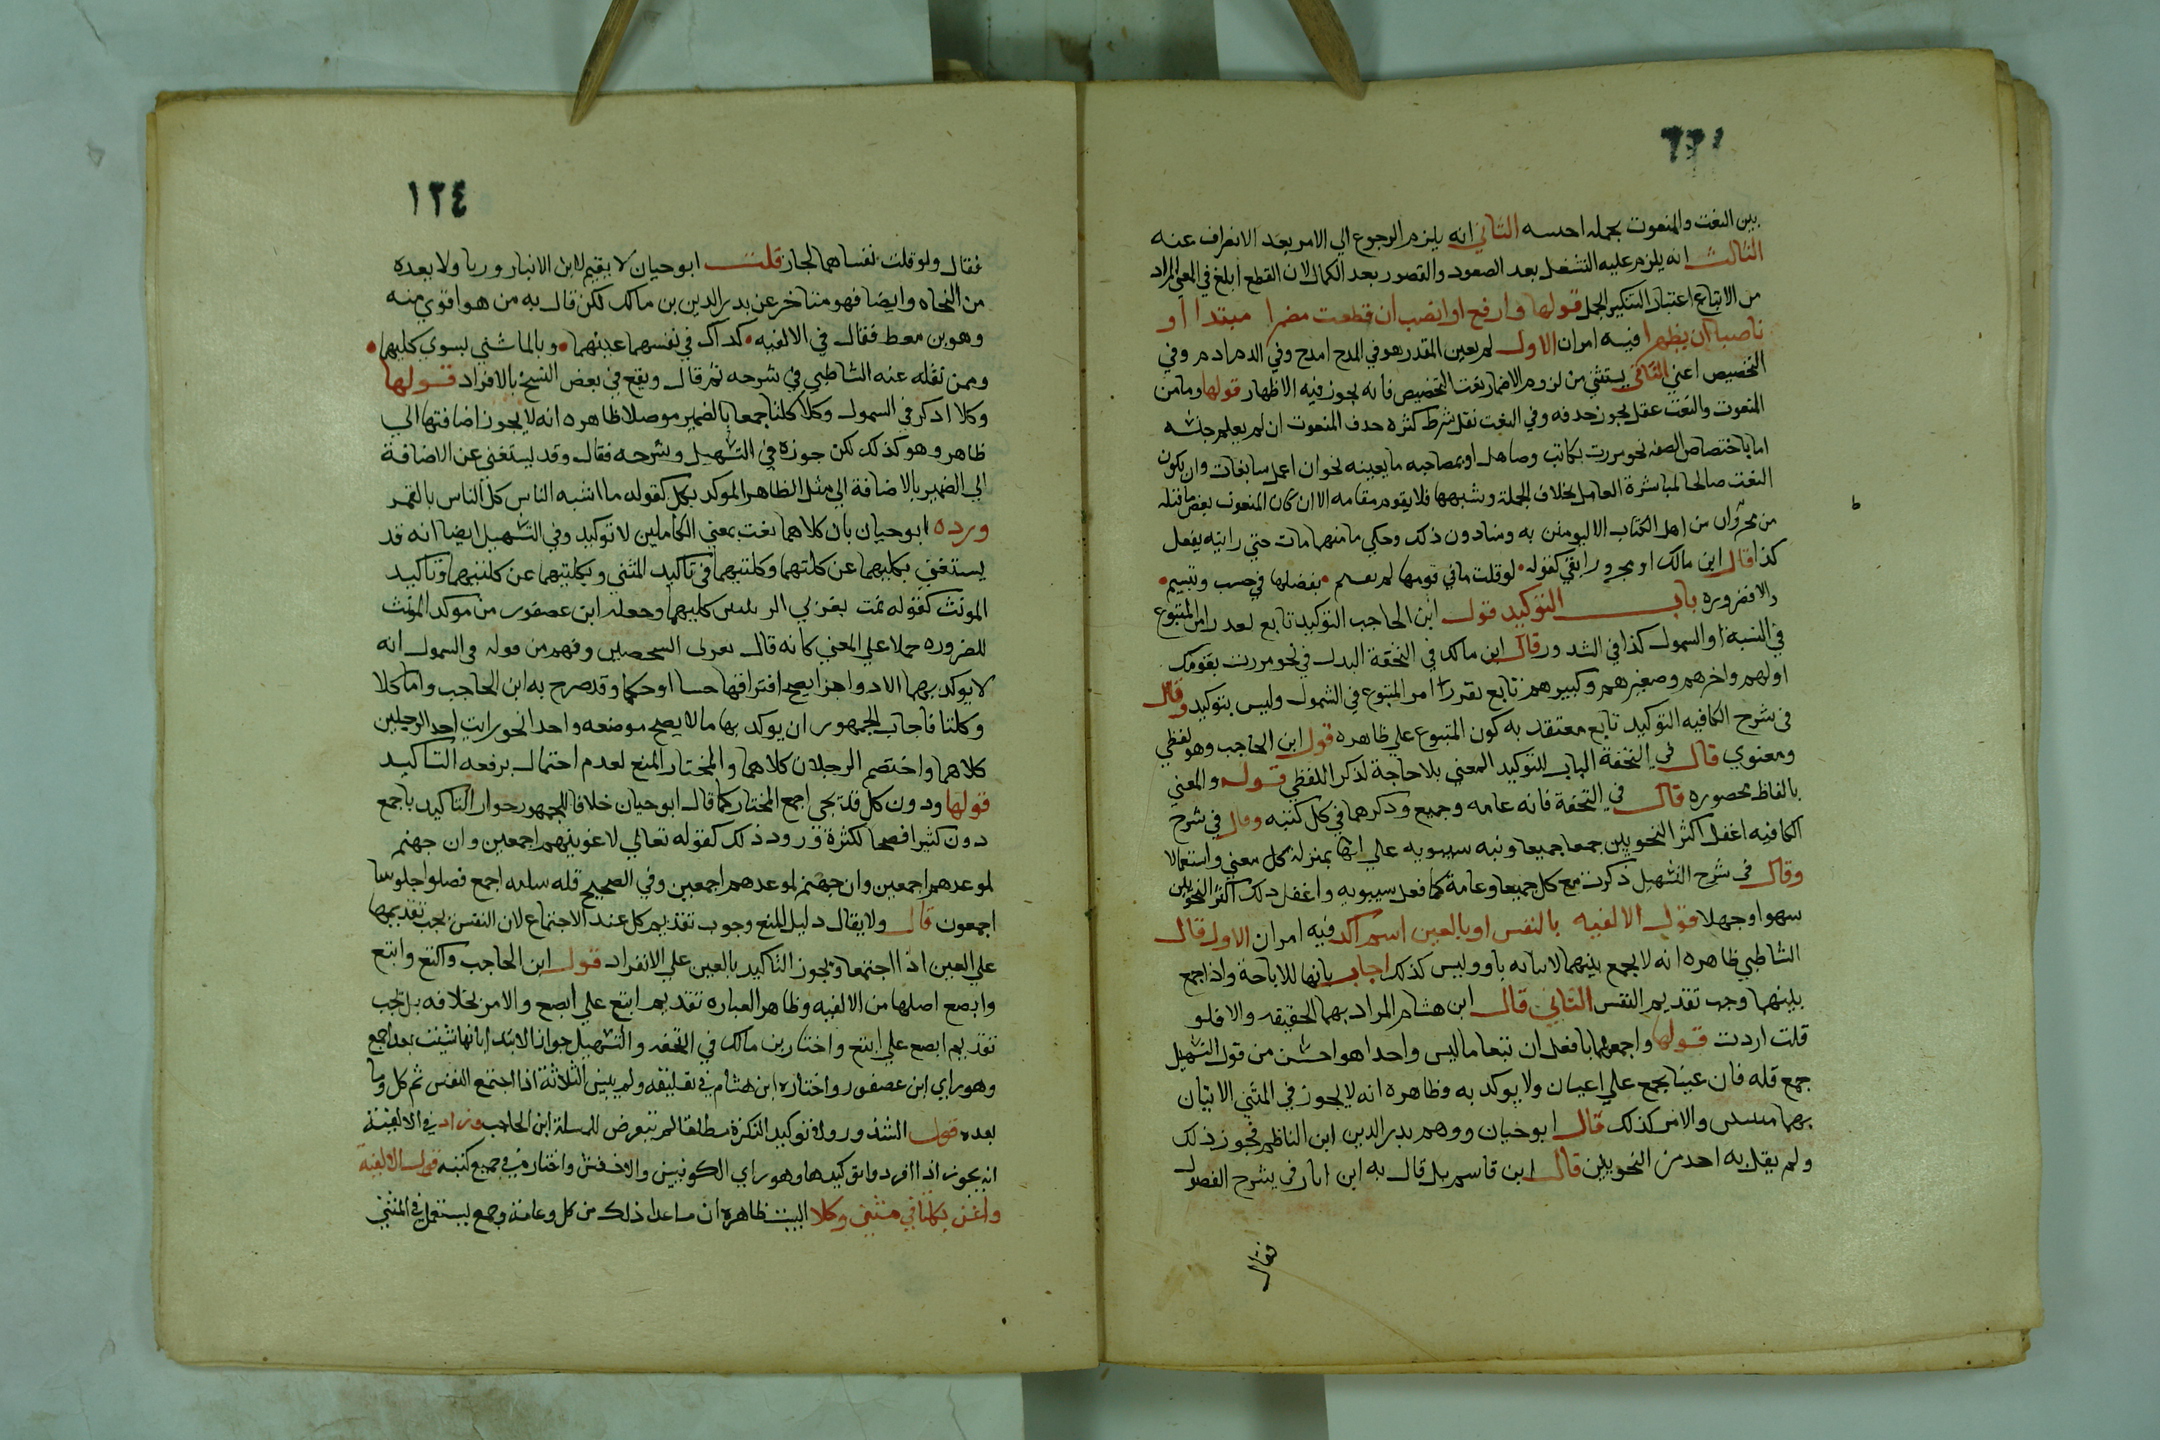 بين النعت والمنعوت بجملة اجنبيه الثاني انه يلزم الرجوع الي الامر بعد الانصراف عنه
الثالث انه يلزم عليه التشغل بعد الصعود والقصور بعد الكمال لان القطع ابلغ في المعني المراد
من الاتباع اعتبار التنكير الجمل قولها وارفع او انصب ان قطعت مضمرا مبتدا او
ناصبا لن يظهرا فيه امران الاول لم يعين المقدر هو في المدح امدح وفي الذم اذم وفي
التخصيص اعني الثاني يستثني من لزوم الاضمار نعت التخصيص فانه يجوز فيه الاظهار قولها وما من
المنعوت والنعت عقل يجوز حذفه وفي النعت يقل شرط كثرة حذف المنعوت ان لم يعلم جنسه
اما باختصاص الصفه نحو مررت بكاتب وصاهل او بمصاحبه ما يعينه نحو ان اعمل سابغات وان يكون
النعت صالحا لمباشرة العامل بخلاف الجملة وشبهها فلا يقوم مقامه الا ان كان المنعوت بعض ما قبله
من مجرور ان من اهل الكتاب الا ليومنن به ومنا دون ذلك وحكي ما منهما مات حتي رايته يفعل
كذا قال ابن مالك او مجرور ابقي كقوله لو قلت ما في قومها لم تيثم يفضلها في حسب وميسم
والا فضروره باب التوكيد قول ابن الحاجب التوكيد تابع يقرر امر المتبوع
في النسبة او الشمول كذا في الشذور قال ابن مالك في التحفة البدل في نحو مررت بقومك
اولهم واخرهم وصغيرهم وكبيرهم تابع يقرر امر المتبوع في الشمول وليس بتوكيد وقال
في شرح الكافيه التوكيد تابع معتقد به كون المتبوع علي ظاهره قول ابن الحاجب وهو لفظي
ومعنوي قال في التحفة الباب للتوكيد المعني بلا حاجة لذكر اللفظي قوله والمعني
بالفاظ محصوره قال في التحفة فانه عامه وجميع وذكرهما في كل كتبه وقال في شرح
الكافيه اغفل اكثر النحويين جمعا جميعا ونبه سيبويه علي انها بمنزلة كل معني واستعمالا
وقال في شرح التسهيل ذكرت مع كل جميعا وعامة كما فعل سيبويه واغفل ذلك اكثر النحويين
سهوا وجهلا قول الالفيه بالنفس او بالعين اسم اكد فيه امران الاول قال
الشاطبي ظاهره انه لا يجمع بينهما لاتيانه باو وليس كذلك اجاب بانها للاباحة واذا جمع
بينهما وجب تقديم النفس الثاني قال ابن هشام المراد بهما الحقيقه والا فلو
قلت اردت قولها واجمعهما بافعل ان تبعا ما ليس واحدا هو احسن من قول التسهيل
جمع قله فان عينا يجمع علي اعيان ولا يوكد به وظاهره انه لا يجوز في المثني الاتيان
بهما والامر كذلك قال ابو حيان ووهم بدر الدين ابن الناظم فجوز ذلك
ولم يقل به احد من النحويين قال ابن قاسم بل قال به ابن اياز في شرح الفصول
فقال
١٢٤
فقال ولو قلت نفساهما لجاز قلت ابو حيان لا يقيم لابن الانبار وزنا ولا بعده
من النحاه وايضا فهو متاخر عن بدر الدين بن مالك لكن قال به من هو اقوي منه
وهو بن معط فقال في الالفيه كذاك في نفسهما عينهما وبالما ثني لسوي كليهما
وممن نقله عنه الشاطبي في شرحه ثم قال ويقع في بعض النسخ بالافراد قولها
وكلا اذكر في الشمول وكلا كلتا جمعا بالضمير موصلا ظاهره انه لا يجوز اضافتها الي
ظاهر وهو كذلك لكن جوزه في التسهيل وشرحه فقال وقد يستغني عن الاضافة
الي الضمير بالاضافة الي مثل الظاهر الموكد بكل كقوله ما اشبه الناس كل الناس بالقمر
ورده ابو حيان بان كلاهما نعت بمعني الكاملين لا توكيد وفي التسهيل ايضا انه قد
يستغني بكليهما عن كلتهما وكلتيهما في تاكيد المثني وبكليهما عن كلتيهما وتاكيد
المونث كقوله يمت بقربي الزينبين كليهما وجعله ابن عصفور من موكد المونث
للضروره حملا علي المعني كانه قال بقربي الشخصين وفهم من قوله في الشمول انه
لا يوكد بهما الا ذو اجزا يصح افتراقها حسا او حكما وقد صرح به ابن الحاجب واما كلا
وكلتا فاجاز الجمهور ان يوكد بهما ما لا يصح موضعه واحدا نحو رايت احد الرجلين
كلاهما واختصم الرجلان كلاهما والمختار المنع لعدم احتمال يرفعه التاكيد
قولها ودون كل قد يجي اجمع المختار كما قال ابو حيان خلافا للجمهور جواز التاكيد باجمع
دون كثيرا فصحا لكثرة ورود ذلك كقوله تعالي لاغوينهم اجمعين وان جهنم
لموعدهم اجمعين وان جهنم لموعدهم اجمعين وفي الصحيح فله سلبه اجمع فصلوا جلوسا
اجمعون قال ولا يقال دليل المنع وجوب تقديم كل عند الاجتماع لان النفس يجب تقديمها
علي العين اذا اجتمعا ويجوز التاكيد بالعين علي الانفراد قول ابن الحاجب واكتع وابتع
وابصع اصلها من الالفيه وظاهر العباره تقديم ابتع علي ابصع والامر بخلافه بل تجب
تقديم ابصع علي ابتع واختار بن مالك في التحفه والتسهيل جواز الابتدا بانها شيت بعد اجمع
وهو راي ابن عصفور واختاره ابن هشام في تعليقه ولم يبين الثلاثة اذا اجتمع النفس ثم كل وما
بعده قول الشذور ولا توكيد النكرة مطلقا لم يتعرض للمسلة ابن الحاجب وزاد في الالفية
انه يجوز اذا افردوا توكيدها وهو راي الكوفيين والاخفش واختاره في جميع كتبه قول الالفية
واغن بكلتا في مثني وكلا البيت ظاهره ان ما عدا ذلك من كل وعامة وجمع يستعمل في المثني